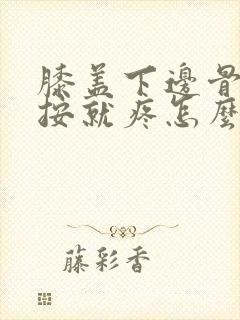 膝盖下邊骨
按就疼怎麼
藤彩香